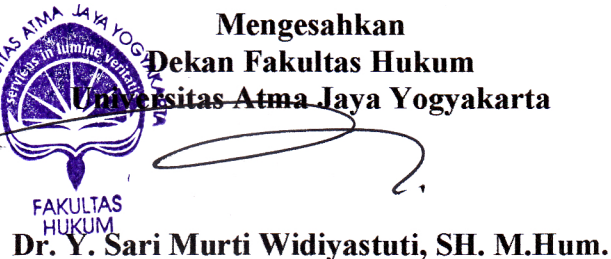 Mengesahkan
Dekan Fakultas Hukum
Universitas Atma Jaya Yogyakarta
ATMA JAYA YOGYAKARTA
serviens in lumine veritatis
FAKULTAS
HUKUM
Dr. Y. Sari Murti Widiyastuti, SH. M.Hum.